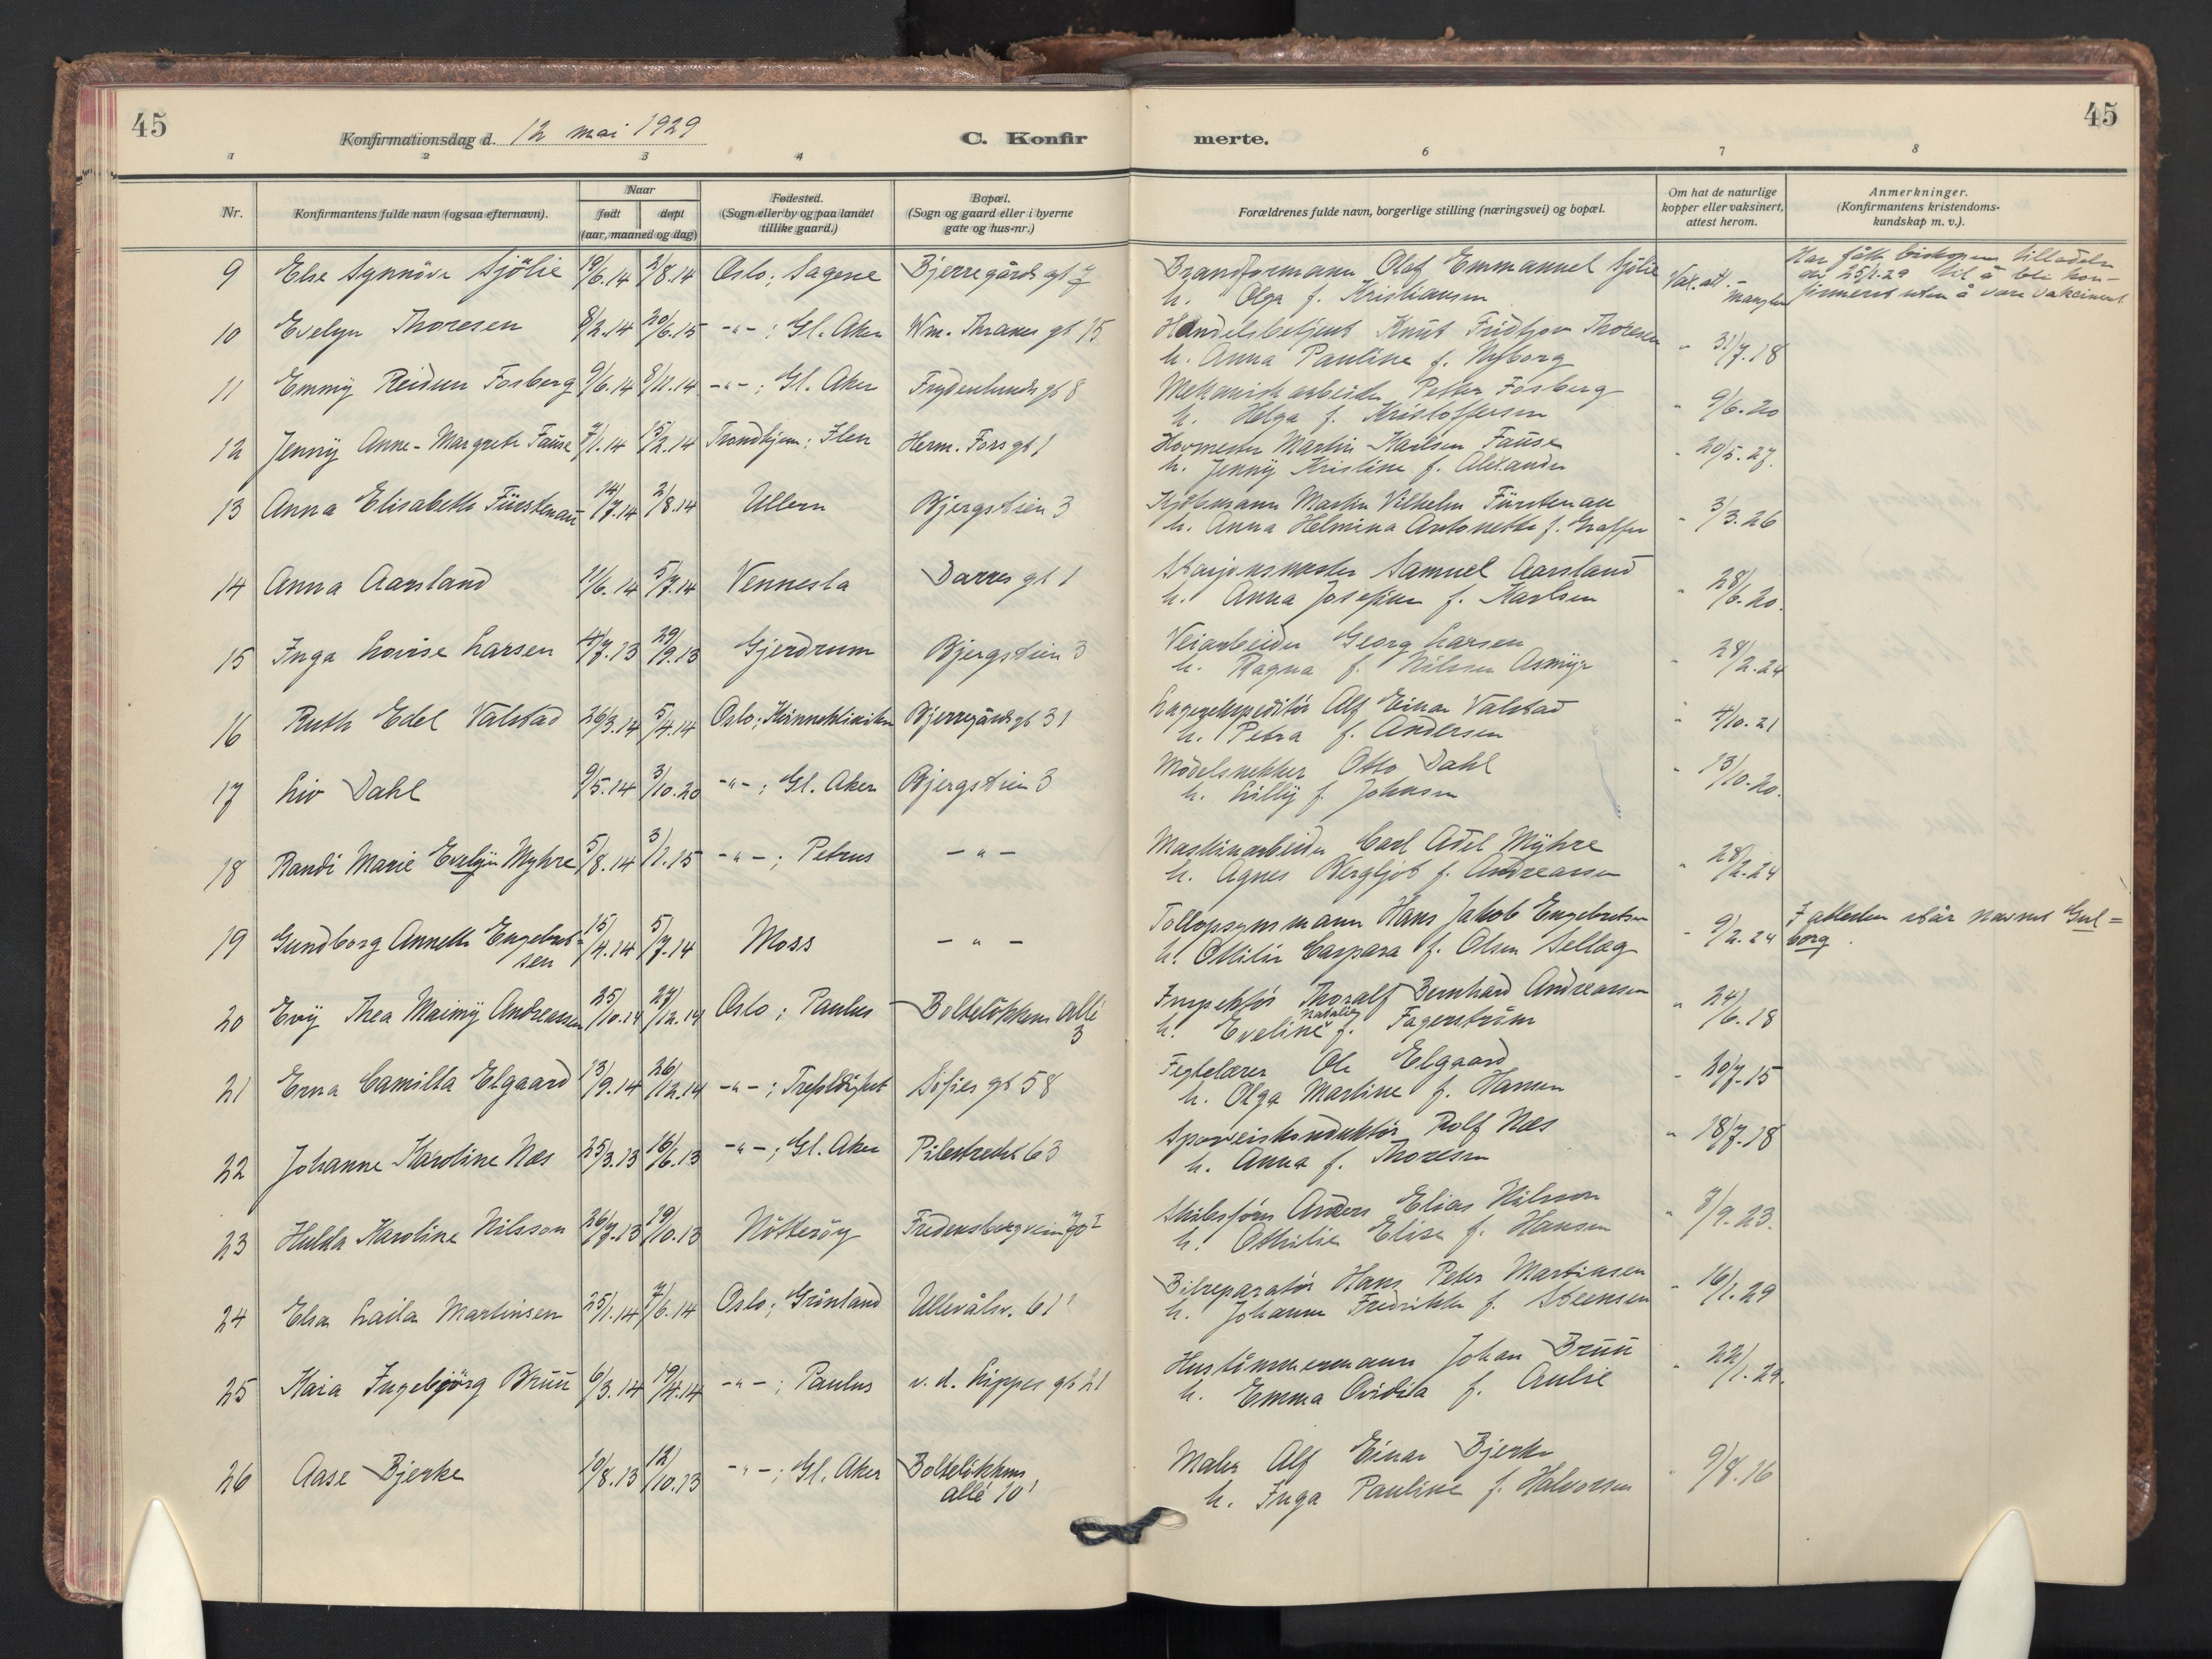 45
Konfirmationsdag d. 12 mai 1929
C. Konfir
merte.
45
1 2 3 4 6 7 8
Nr.
Konfirmantens fulde navn (ogsaa efternavn).
Naar
født døpt
(aar, maaned og dag)
Fødested.
(Sogn eller by og paa landet
tillike gaard.)
Bopæl.
(Sogn og gaard eller i byerne
gate og hus-nr.)
Forældrenes fulde navn, borgerlige stilling (næringsvei) og bopæl.
Om hat de naturlige
kopper eller vaksinert,
attest herom.
Anmerkninger.
(Konfirmantens kristendoms-
kundskap m. v.).
9 Else Synnöve Sjölie 19/6.14 2/8.14 Oslo; Sagene Bjerregårds gt 7 Brandformann Olaf Emmanuel Sjölie
h. Olga f. Kristiansen Vax. att. - mangler
Har fått biskopens tilladelse
av 25/1.29 til å bli kon-
firmeret uten å være vaksinert
10 Evelyn Thoresen 8/2.14 20/6.15 -"- ; Gl. Aker Wm. Thranes gt 15 Handelsbetjent Knut Fridtjov Thoresen
h. Anna Pauline f. Nyborg " 31/7.18
11 Emmy Reidun Fosberg 9/6.14 8/11.14 -"- ; Gl. Aker Frydenlunds gt 8 Mekanisk arbeider Petter Fosberg
h. Helga f. Kristoffersen " 9/6.20
12 Jenny Anne-Margrete Fause 7/1.14 15/2.14 Trondhjem; Ilen Herm. Fors gt 1 Hovmester Martin Karlsen Fause
h. Jenny Kristine f. Alexander " 20/5.27.
13 Anna Elisabeth Fürstenau 14/7.14 2/8.14 Ullern Bjergstien 3 Kjöbmann Martin Vilhelm Fürstenau
h. Anna Helmina Antonette f. Graffer " 3/3.26
14 Anna Aarsland 11/6.14 5/7.14 Vennesla Darres gt 1 Stasjonsmester Samuel Aarsland
h. Anna Josefine f. Karlsen " 28/6.20.
15 Inga Lovise Larsen 4/7.13 29/9.13 Gjerdrum Bjergstien 3 Veiarbeider Georg Larsen
h. Ragna f. Nilsen Asmyr " 28/2.24
16 Ruth Edel Valstad 26/3.14 5/4.14 Oslo; Kvinneklinikken Bjerregårds gt 31 Lagerekspeditör Alf Einar Valstad
h. Petra f. Andersen " 4/10.21
17 Liv Dahl 9/5.14 3/10.20 -"- ; Gl. Aker Bjergstien 3 Modelsnekker Otto Dahl
h. Lilly f. Johnsen " 13/10.20.
18 Randi Marie Evelyn Myhre 5/8.14 3/1.15 -"- ; Petrus -"- Maskinarbeider Carl Axel Myhre
h. Agnes Bergljot f. Andreassen " 28/2.24
19 Gundborg Annette Engebret=
sen 15/4.14 5/7.14 Moss -"- Tollopsynsmann Hans Jakob Engebretsen
h. Ottilie Caspara f. Olsen Sellæg " 9/2.24 I attesten står navnet Gul=
borg.
20 Evy Thea Maimy Andreassen 25/10.14 27/12.14 Oslo; Paulus Bolteløkkens allé
3 Inspektör Thoralf Bernhard Andreassen
h. Eveline Natalie f. Fagerström " 24/6.18
21 Erna Camilla Elgaard 13/9.14 26/12.14 -"- ; Trefoldighet Sofies gt 58 Fegtelærer Ole Elgaard
h. Olga Martine f. Hansen " 20/7.15
22 Johanne Karoline Næs 25/3.13 16/6.13 -"- ; Gl. Aker Pilestredet 63 Sporveiskonduktör Rolf Næs
h. Anna f. Thoresen " 18/7.18
23 Hulda Karoline Nilsson 26/7.13 19/10.13 Nötteröy Fredensborgveien 70 I Skibsförer Anders Elias Nilsson
h. Othilie Elise f. Hansen " 8/9.23.
24 Elsa Laila Martinsen 25/1.14 7/6.14 Oslo; Grönland Ullevålsv. 61 Bilreparatör Hans Peter Martinsen
h. Johanne Fredrikke f. Steensen " 16/1.29
25 Kaia Ingebjörg Bruu 6/3.14 19/4.14 -"- ; Paulus v. d. Lippes gt 21 Hustömmermann Johan Bruu
h. Emma Ovidia f. Aulie " 22/1.29.
26 Aase Bjerke 10/8.13 12/10.13 -"- ; Gl. Aker Bolteløkkens
allé 10 Maler Alf Einar Bjerke
h. Inga Pauline f. Halvorsen " 9/8.16